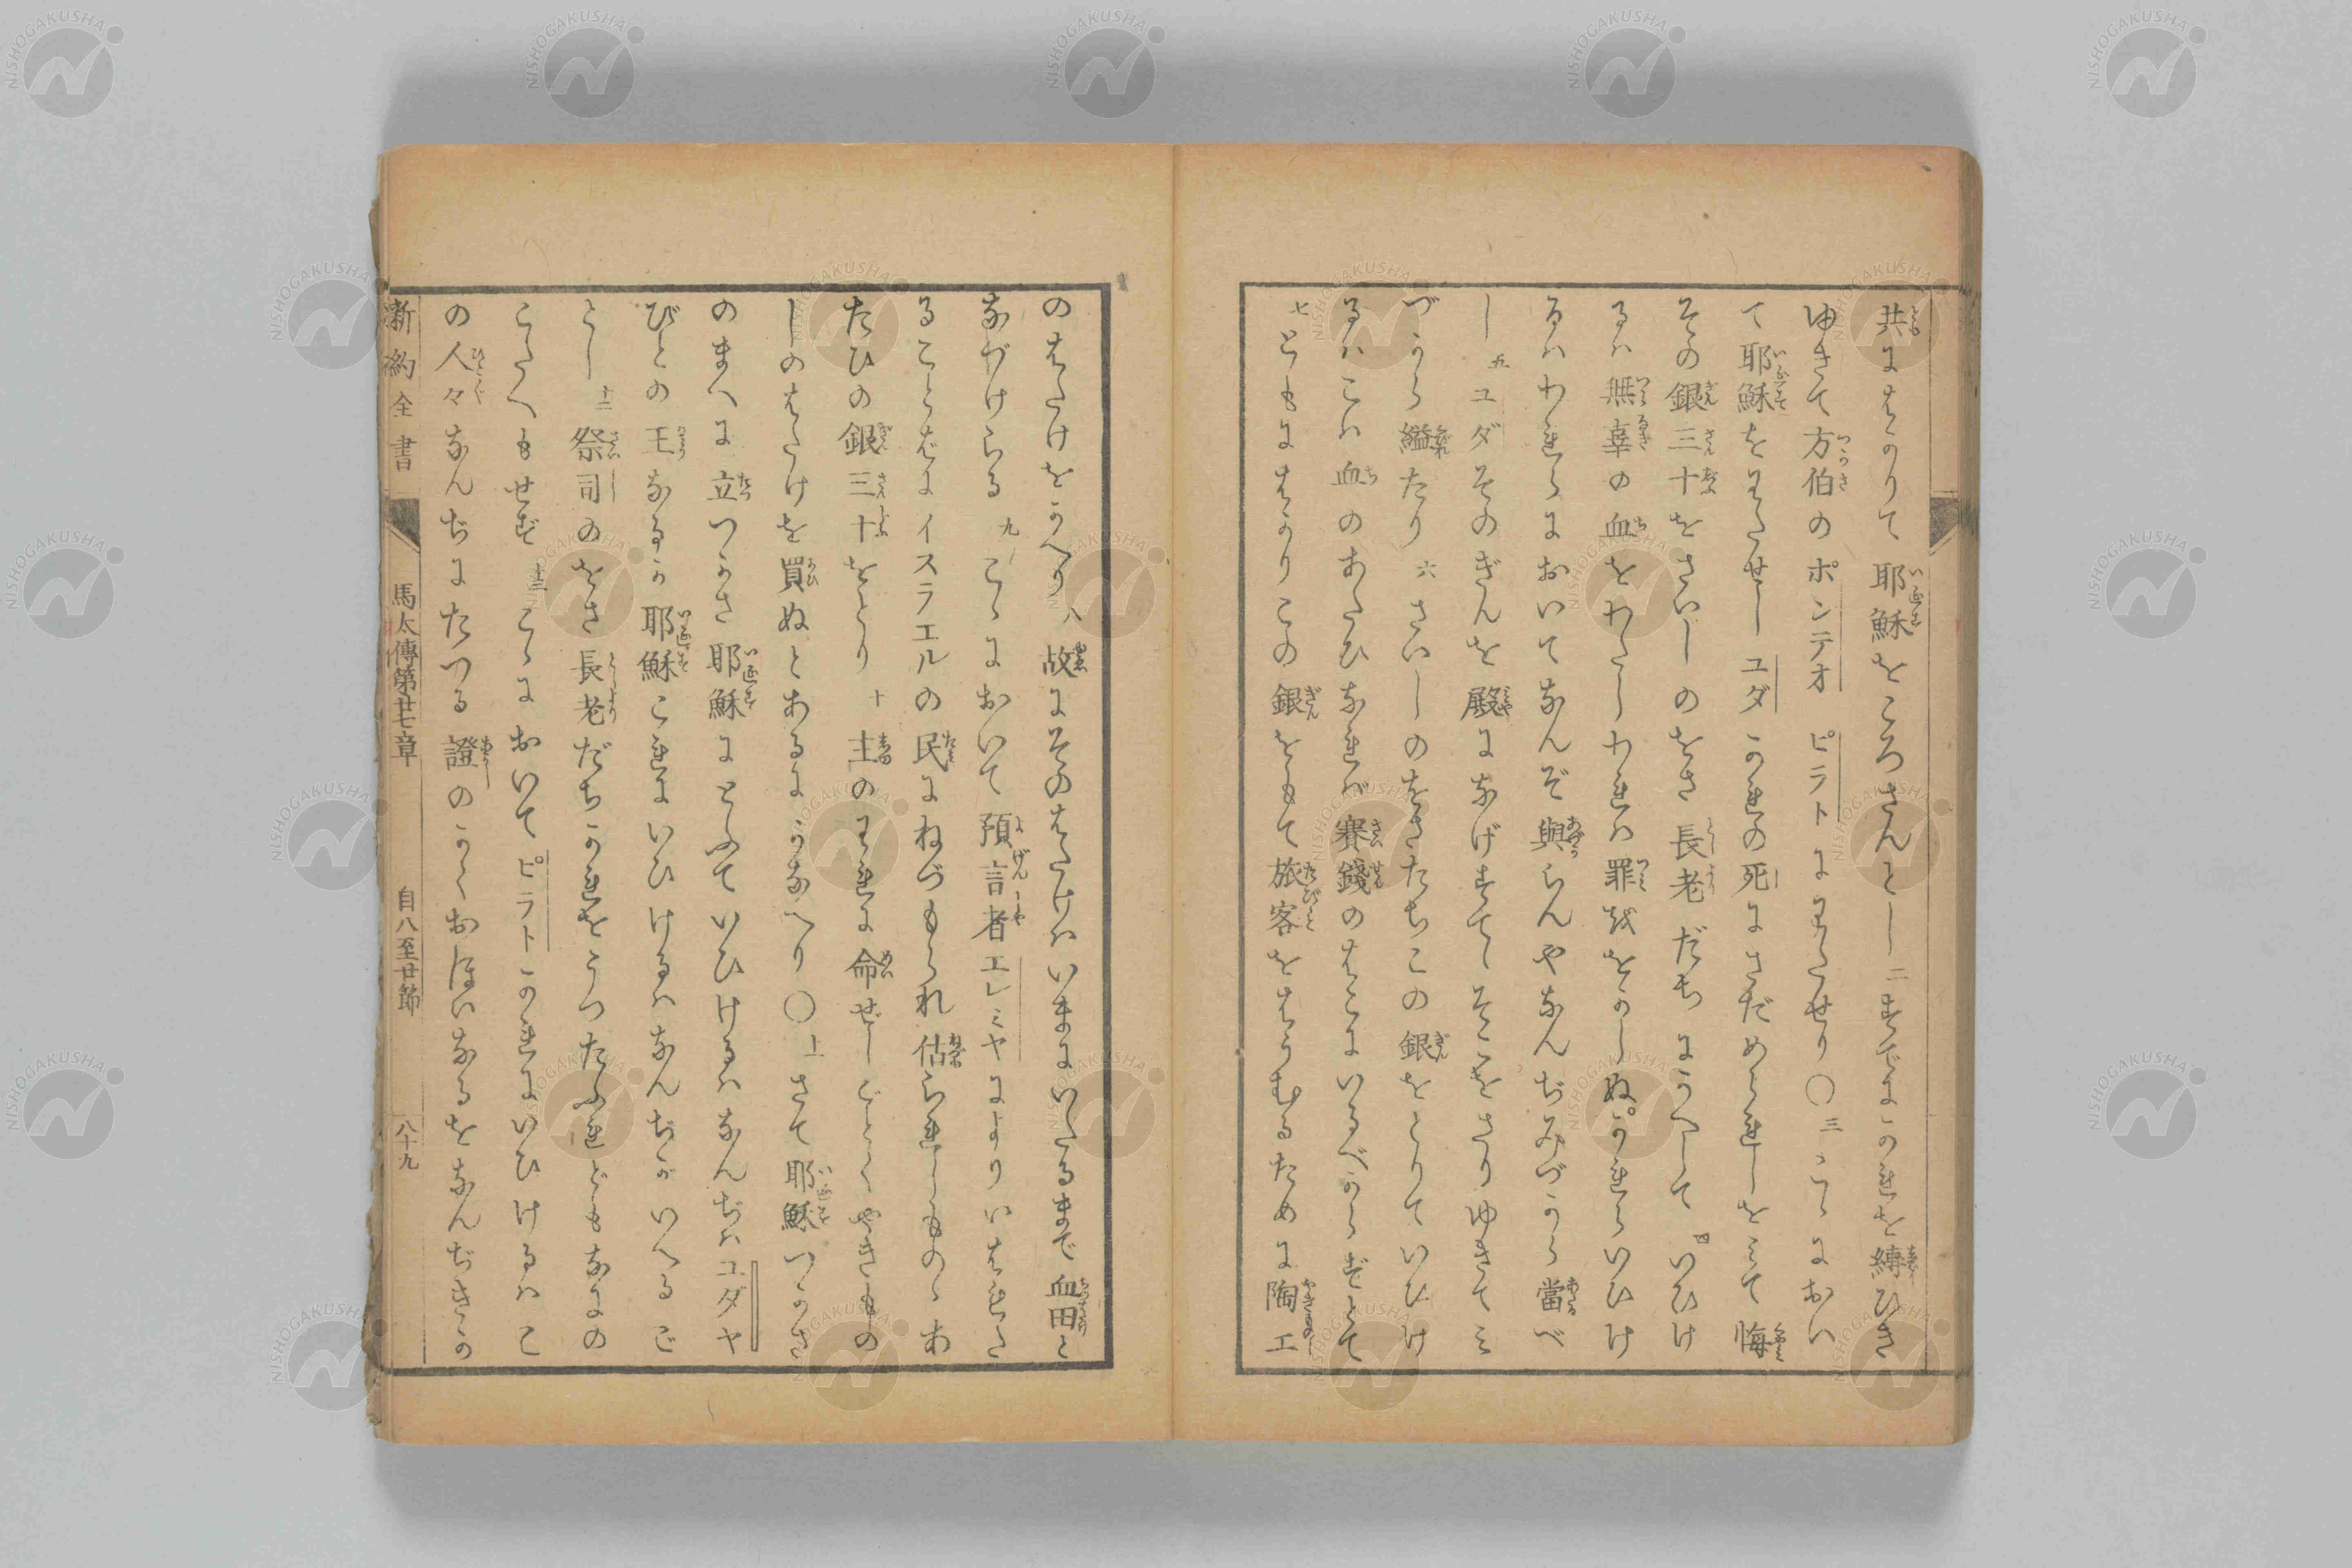 共にはかりて耶穌をころさんとし二すでにこのれを縛ひき
ゆきて方伯のポンテオ ピラトにわたせり〇三こゝにおい
て耶穌をわたせしユダかれの死にさだめられしをミて悔
その銀三十をさいしのをさ長老だちにかへして四いひけ
るハ無辜の血をわたしわれハ罪ををかしぬかれらいひけ
るハわれらにおいてなんぞ與らんやなんぢみづから當べ
し五ユダそのぎんを殿になげすてゝそこをさりゆきてミ
づから縊たり六さいしのをさたちこの銀をとりていひけ
るハこハ血のあたひなれバ賽錢のはこにいるべからずとて
七ともにはかりこの銀をもて旅客をはうむるために陶工
のはたけをかへり八故にそのはたけハいまにいたるまで血田と
なづけらる九こゝにおいて預言者エレミヤによりいはれた
ることばにイスラエルの民にねづもられ估られしものゝあ
たひの銀三十をとり十主のわれに命ぜしごとくやきもの
しのはたけを買ぬとあるにかなへり〇十一さて耶穌つかさ
のまへに立つかさ耶穌にとふていひけるハなんぢハユダヤ
びとの王なるか耶穌これにいひけるハなんぢがいへるご
とし十二祭司のをさ長老だちかれをうつたふれどもなにの
こたへもせず十三こゝにおいてピラトかれにいひけるハこ
の人々なんぢにたつる證のかくおほいなるをなんぢきか
新約全書 馬太傳第廿七章 自八至廿節 八十九